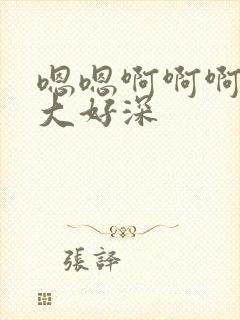 嗯嗯啊啊啊
大好深
張譯